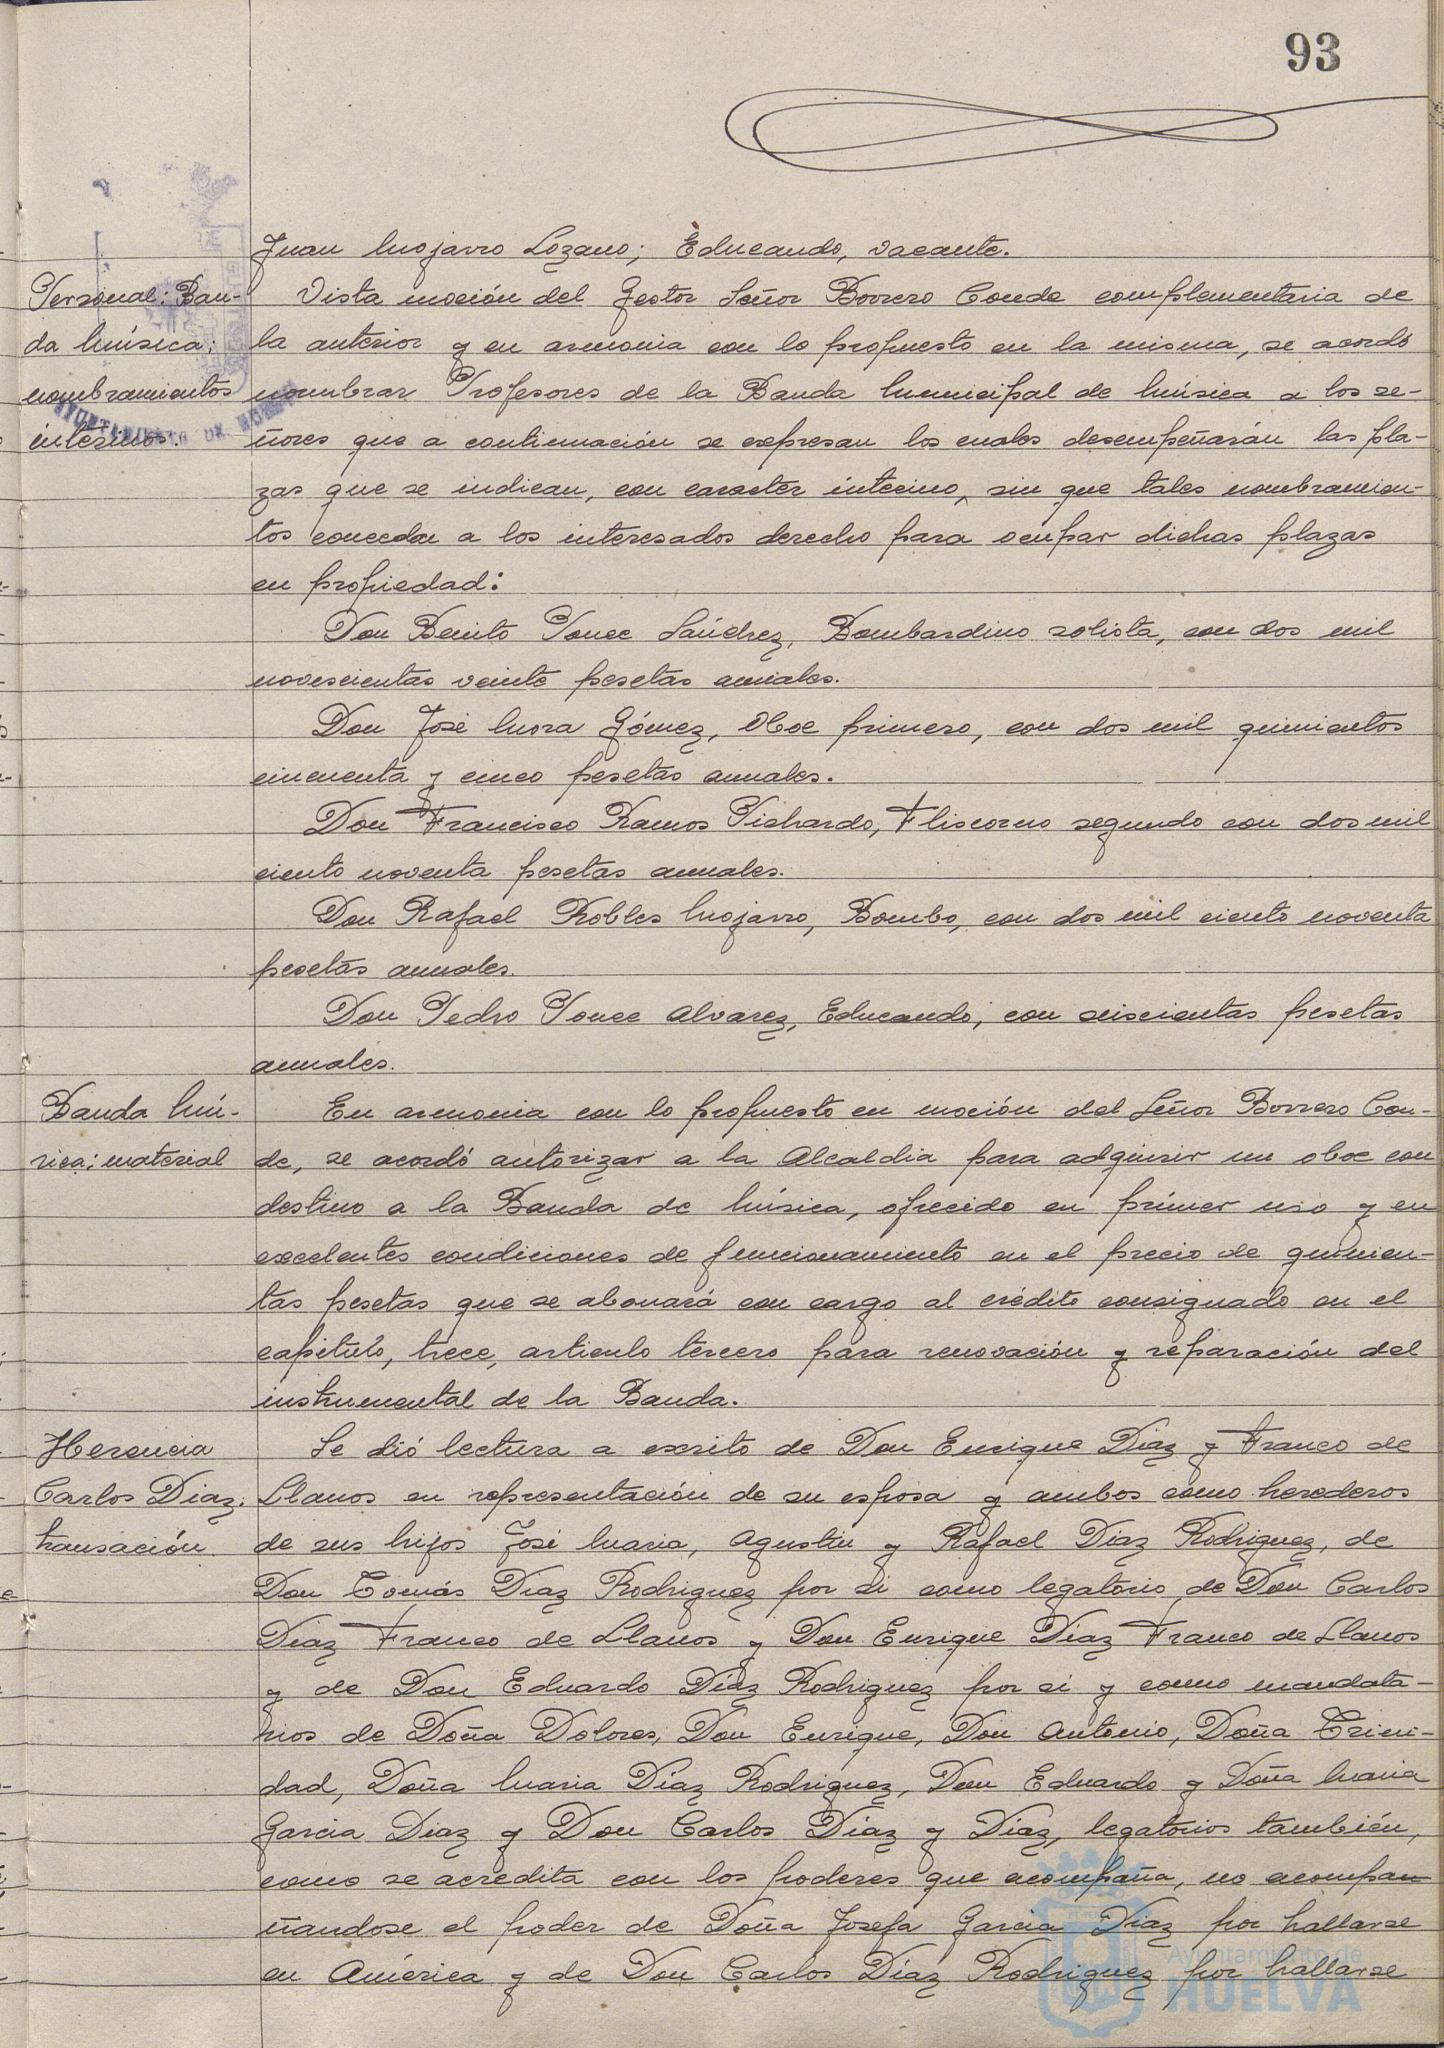 93
Juan Mojarro Lozano; Educando, vacante.
Personal: Ban-
da Música;
nombramientos
interinos.
Vista moción del Gestor Señor Borrero Conde complementaria de
la anterior y en armonia con lo propuesto en la misma, se acordó
nombrar Profesores de la Banda Municipal de Música a los se-
ñores que a continuación se expresan los cuales desempeñarán las pla-
zas que se indican, con caracter interino, sin que tales nombramien-
tos concedan a los interesados derecho para ocupar dichas plazas
en propiedad:
Don Benito Ponce Sánchez, Bombardino solista, con dos mil
novescientas veinte pesetas anuales.
Don José Mora Gómez, Oboe primero, con dos mil quinientos
cincuenta y cinco pesetas anuales.
Don Francisco Ramos Pichardo, Fliscorno segundo con dos mil
ciento noventa pesetas anuales.
Don Rafael Robles Mojarro, Bombo, con dos mil ciento noventa
pesetas anuales.
Don Pedro Ponce Alvarez, Educando, con seiscientas pesetas
anuales.
Banda Mú-
sica; material
En armonia con lo propuesto en moción del Señor Borrero Con-
de, se acordó autorizar a la Alcaldia para adquirir un oboe con
destino a la Banda de Música, ofrecido en primer uso y en
excelentes condiciones de funcionamiento en el precio de quinien-
tas pesetas que se abonará con cargo al crédito consignado en el
capitulo, trece, articulo tercero para renovación y reparación del
instrumental de la Banda.
Herencia
Carlos Diaz;
transación.
Se dió lectura a escrito de Don Enrique Diaz y Franco de
Llanos en representación de su esposa y ambos como herederos
de sus hijos José Maria, Agustin y Rafael Diaz Rodriguez, de
Don Tomás Diaz Rodriguez por si como legatorio de Don Carlos
Diaz Franco de Llanos y Don Enrique Diaz Franco de Llanos
y de Don Eduardo Díaz Rodriguez por si y como mandata-
rios de Doña Dolores, Don Enrique, Don Antonio, Doña Trini-
dad, Doña Maria Díaz Rodriguez, Don Eduardo y Doña Maria
Garcia Diaz y Don Carlos Díaz y Díaz, legatorios también,
como se acredita con los poderes que acompaña, no acompa-
ñandose el poder de Doña Josefa Garcia Diaz por hallarse
en América y de Don Carlos Díaz Rodriguez por hallarse
Ayuntamiento de
HUELVA